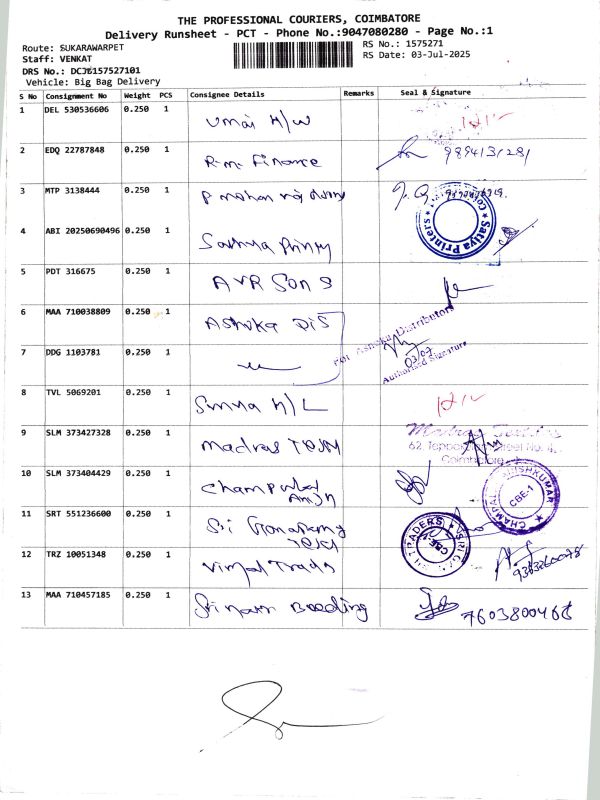 THE PROFESSIONAL COURIERS, COIMBATORE
Delivery Runsheet - PCT - Phone No.:9047080280 - Page No.:1
Route: SUKARAWARPET
RS No.: 1575271
Staff: VENKAT
RS Date: 03-Jul-2025
DRS No.: DCJE157527101
Vehicle: Big Bag Delivery
S No Consignment No Weight PCS Consignee Details Remarks Seal & Signature
1 DEL 530536606 0.250 1 Umai H/W
2 EDQ 22787848 0.250 1 R.m. Finance 9894131281
3 MTP 3138444 0.250 1 P mohan raj
4 ABI 20250690496 0.250 1 Sathya Printry
★ Satiya Printers ★
5 PDT 316675 0.250 1 AVR Sons
6 MAA 710038809 0.250 1 Ashoka Dis
For Ashoka Distributors
7 DDG 1103781 0.250 1
03/07
Authorised Signature
8 TVL 5069201 0.250 1 H/L
9 SLM 373427328 0.250 1 madras Tex
62, Street No. 4,
Coimbatore
10 SLM 373404429 0.250 1 Champalal
CBE-1
11 SRT 551236600 0.250 1 Sri Ganapathy
TRADERS
CBE
12 TRZ 10051348 0.250 1 Vimal Trads
9363260078
13 MAA 710457185 0.250 1 Beeding 7603800468